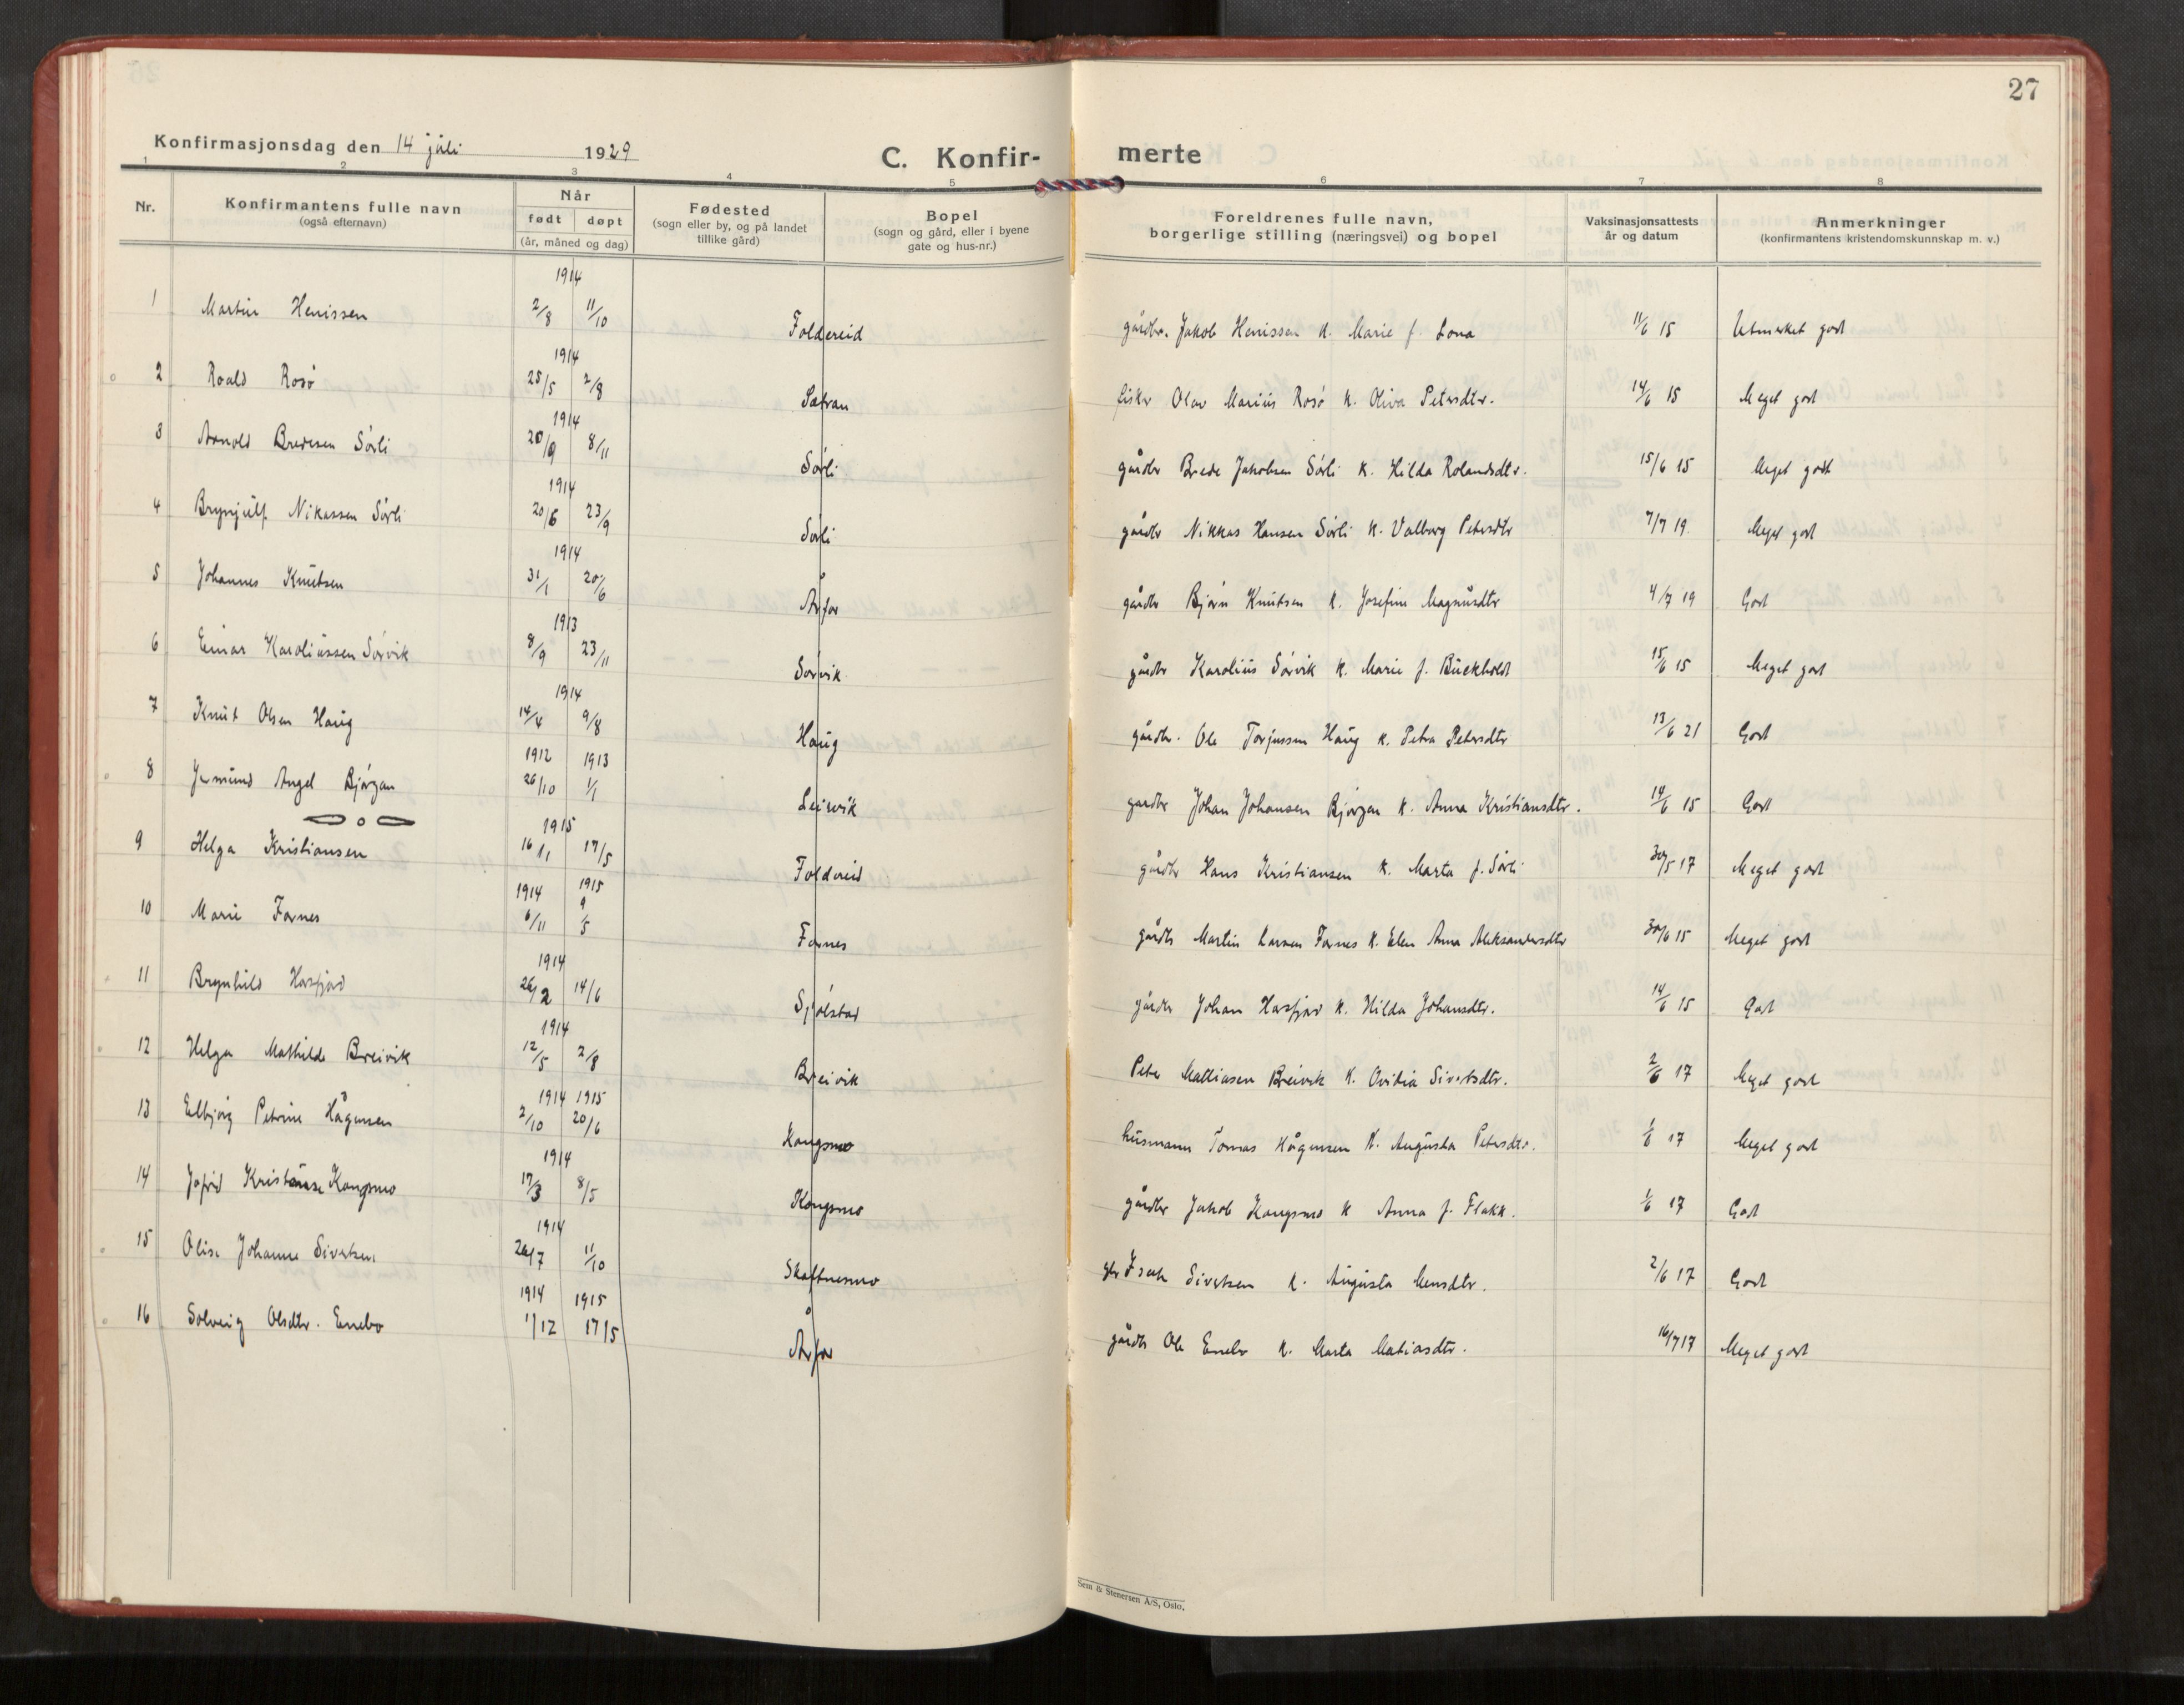 27
Konfirmasjonsdag den 14 juli 1929
C. Konfir- merte
1 2 3 4 5 6 7 8
Nr.
Konfirmantens fulle navn
(også efternavn)
Når
født døpt
(år, måned og dag)
Fødested
(sogn eller by, og på landet
tillike gård)
Bopel
(sogn og gård, eller i byene
gate og hus-nr.)
Foreldrenes fulle navn,
borgerlige stilling (næringsvei) og bopel
Vaksinasjonsattests
år og datum
Anmerkninger
(konfirmantens kristendomskunnskap m. v.)
1914
1 Martin Henissen 2/8 11/10 Foldereid gårdbr. Jakob Henissen k. Marie f. Lona 11/6 15 Utmerket godt
1914
2 Roald Rosø 25/5 2/8 fisker Olav Marius Rosø k. Oliva Petersdtr. 14/6 15 Meget godt
1914
3 Arnold Bredesen Sørli 20/9 8/11 Sørli gårdbr Brede Jakobsen Sørli k. Hilda Rolandsdtr. 15/6 15 Meget godt
1914
4 Brynjulf Nikassen Sørli 20/6 23/9 Sørli gårdbr Nikkas Hansen Sørli k. Valborg Petersdtr 7/7 19 Meget godt
1914
5 Johannes Knutsen 31/1 20/6 Årfor gårdbr Bjørn Knutsen k. Josefine Magnusdtr 4/7 19 Godt
1913
6 Einar Karoliussen Sørvik 8/9 23/11 Sørvik gårdbr Karolius Sørvik k. Marie f. Buckholdt 15/6 15 Meget godt
1914
7 Knut Olsen Haug 14/4 9/8 Haug gårdbr. Ole Torjussen Haug k. Petra Petersdtr 13/6 21 Godt
1912 1913
8 Jermund Angel Bjørgan 26/10 1/1 Leirvik gardbr Johan Johansen Bjørgan k. Anna Kristiansdtr. 14/6 15 Godt
1915
9 Helga Kristiansen 16/1 17/5 Foldereid gårdbr Hans Kristiansen k. Marta f. Sørli 30/5 17 Meget godt
1914 1915
10 Marie Fornes 6/11 9/5 Fornes gårdbr Martin Larsen Fornes k. Elen Anna Aleksandersdtr 30/6 15 Meget godt
1914
11 Brynhild Horsfjord 26/2 14/6 Sjølstad gårdbr Johan Horsfjord k. Hilda Johansdtr. 14/6 15 Godt
1914
12 Helga Mathilde Breivik 12/5 2/8 Breivik Peter Mattiasen Breivik k. Ovidia Sivertsdtr. 2/6 17 Meget godt
1914 1915
13 Elbjørg Petrine Hågensen 2/10 20/6 Kongsmo husmann Tomas Hågensen k. Augusta Petersdtr. 1/6 17 Meget godt
1914
14 Jofrid Kristense Kongsmo 17/3 8/5 Kongsmo gårdbr Jakob Kongsmo k Anna f. Flakk. 1/6 17 Godt
1914
15 Olise Johanne Sivertsen 26/7 11/10 Skaftnesmo gbr Isak Sivertsen k. Augusta Mensdtr. 2/6 17 Godt
1914 1915
16 Solveig Olsdtr. Enebo 1/12 17/5 Årfor gårdbr Ole Enebo k. Marta Matiasdtr. 16/7 17 Meget godt
Sem & Stenersen A/S, Oslo.